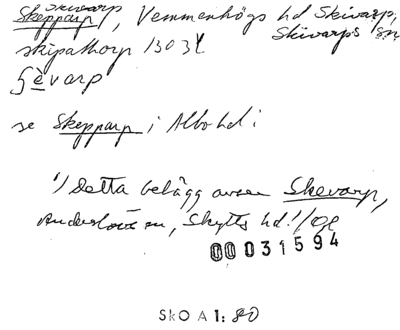 Skivarp
Skepparp, Vemmenhögs hd Skivarp,
Skivarps sn
skipathorp 1303
ʃèvarp
se Skepparp i Albo hd
1/ Detta belägg avser Skevarp,
Anderslövs sn, Skytts hd.!/
00031594
SkO A 1: 80